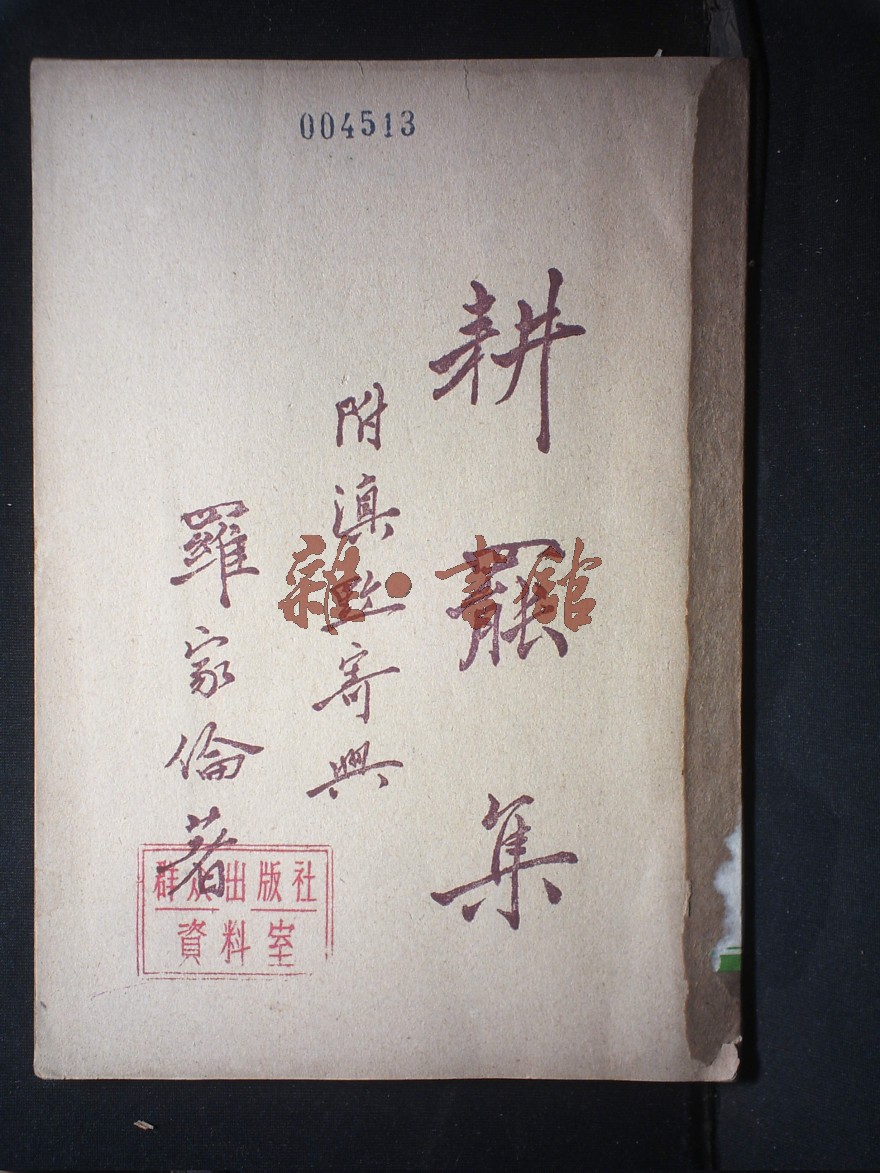 004513
耕罷集
附滇黔寄興
羅家倫著
雜·書館
群众出版社
資料室